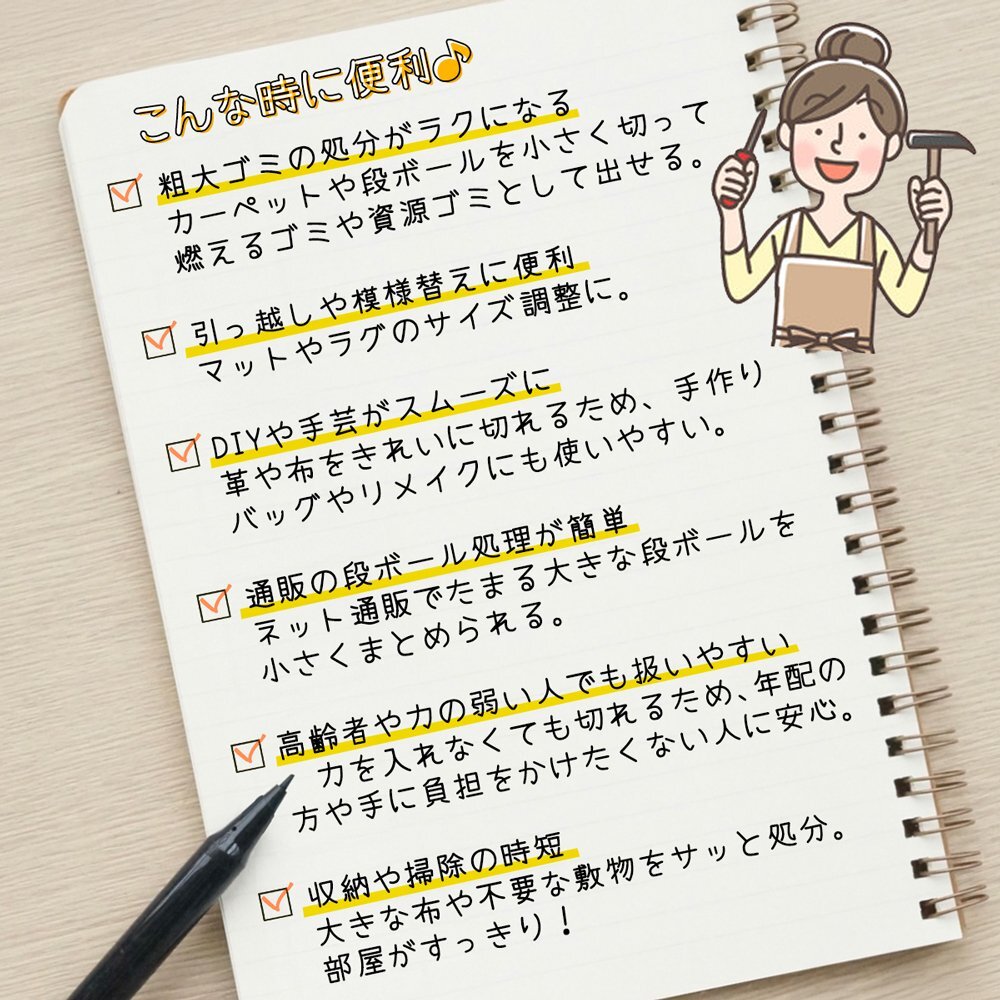 こんな時に便利♪
粗大ゴミの処分がラクになる
カーペットや段ボールを小さく切って
燃えるゴミや資源ゴミとして出せる。
引っ越しや模様替えに便利
マットやラグのサイズ調整に。
DIYや手芸がスムーズに
革や布をきれいに切れるため、手作り
バッグやリメイクにも使いやすい。
通販の段ボール処理が簡単
ネット通販でたまる大きな段ボールを
小さくまとめられる。
高齢者や力の弱い人でも扱いやすい
力を入れなくても切れるため、年配の
方や手に負担をかけたくない人に安心。
収納や掃除の時短
大きな布や不要な敷物をサッと処分。
部屋がすっきり！